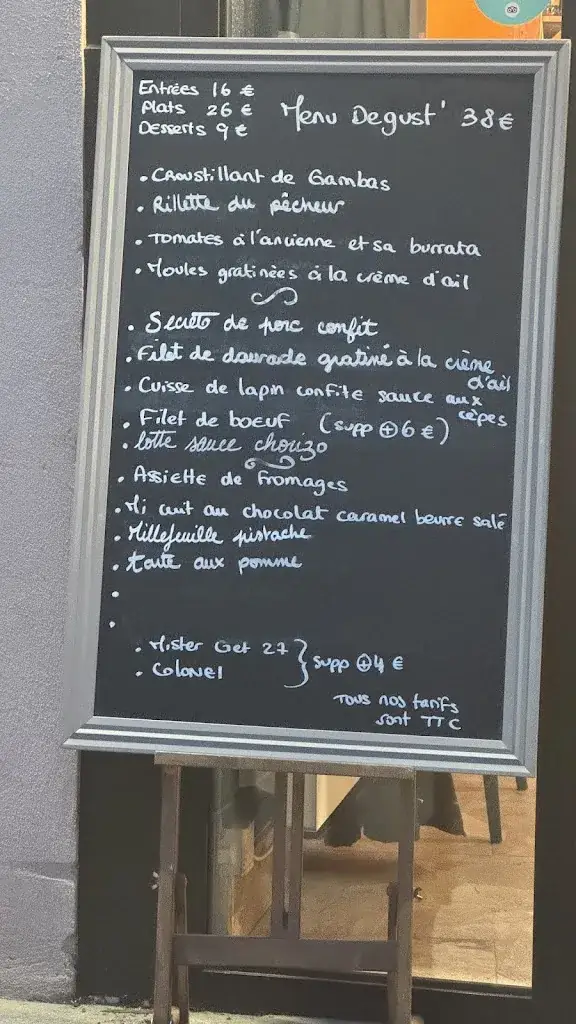 Entrées 16 €
Plats 26 €
Desserts 9 €
Menu Degust' 38 €
• Croustillant de Gambas
• Rillette du pêcheur
• Tomates à l'ancienne et sa burrata
• Moules gratinées à la crème d'ail
• Secreto de porc confit
• Filet de daurade gratiné à la crème
d'ail
• Cuisse de lapin confite sauce aux
cèpes
• Filet de boeuf (supp + 6 €)
• lotte sauce chorizo
• Assiette de fromages
• Mi cuit au chocolat caramel beurre salé
• Millefeuille pistache
• tarte aux pomme
•
•
• Mister Get 27
• Colonel
} supp + 4 €
Tous nos tarifs
sont TTC